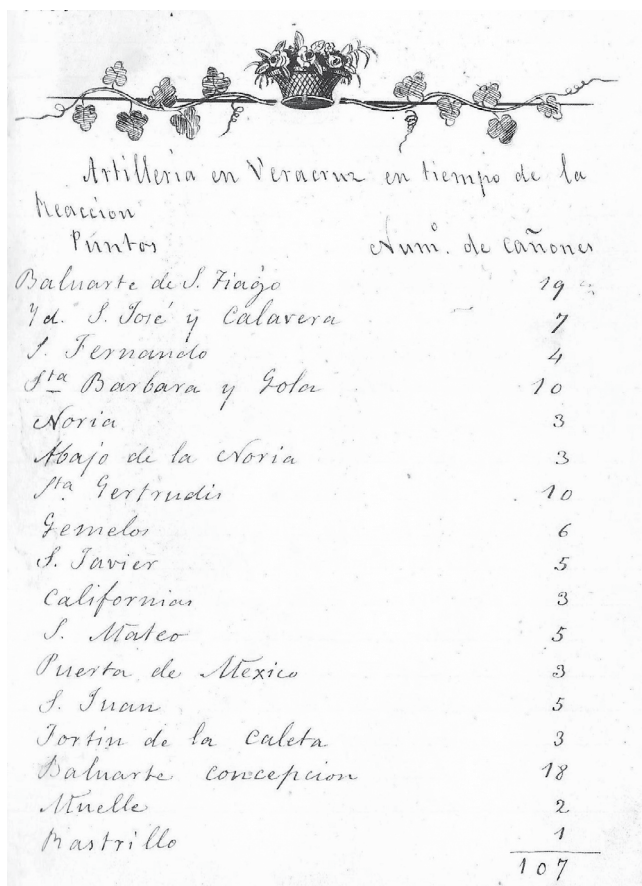 Artilleria en Veracruz en tiempo de la
Reaccion
Puntos Num. de cañones
Baluarte de S. Tiago 19
Yd. S. José y Calavera 7
S. Fernando 4
Sta Barbara y Gola 10
Noria 3
Abajo de la Noria 3
Sta Gertrudis 10
Gemelos 6
S. Javier 5
Californias 3
S. Mateo 5
Puerta de Mexico 3
S. Juan 5
Fortin de la Caleta 3
Baluarte concepcion 18
Muelle 2
Rastrillo 1
107